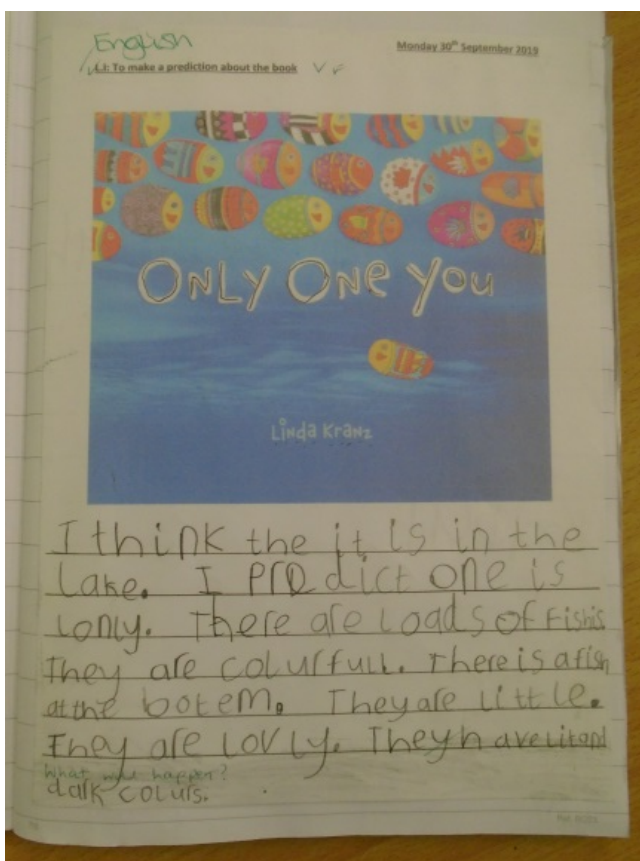 English
Monday 30th September 2019
L.I: To make a prediction about the book
ONLY ONE YOU
Linda Kranz
I think the it is in the
Lake. I Predict one is
Lonly. There are Loads of Fishis
They are colurfull. There is a fish
at the botem. They are Little.
They are Lovly. They have Lit and
What will happen?
dark coluls.